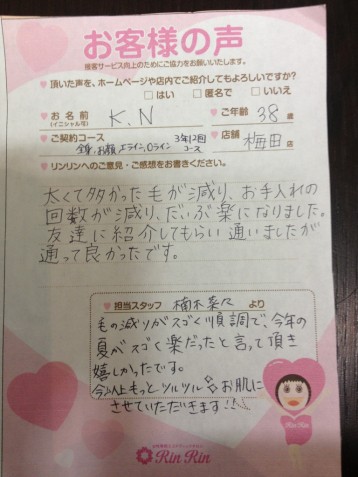 お客様の声
接客サービス向上のためにご協力をお願いいたします。
頂いた声を、ホームページや店内でご紹介してもよろしいですか?
はい 匿名で いいえ
お名前 K.N ご年齢 38歳
(イニシャル可)
ご契約コース 3年12回 店舗 梅田店
全身,お顔,Eライン,Oライン コース
リンリンへのご意見・ご感想をお書きください。
太くて多かった毛が減り、お手入れの
回数が減り、だいぶ楽になりました。
友達に紹介してもらい通いましたが
通って良かったです。
担当スタッフ 楠木 より
毛の減りがスゴく順調で、今年の
夏がスゴく楽だったと言って頂き
嬉しかったです。
今以上もっとツルツルお肌に
させていただきます!!
Rin Rin